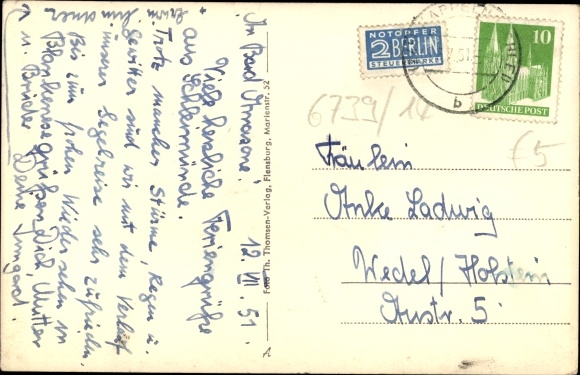 In Bad
12. VII. 51.
Viele herzliche Feriengrüße
aus Schleimünde.
Trotz mancher Stürme, Regen u.
Gewitter sind wir mit dem Verlauf
unserer Segelreise sehr zufrieden.
Bis zum frohen Wiedersehen in
Blankenese grüßen Dich, Mutter
u. Brüder
Deine Irmgard.
Foto Th. Thomsen-Verlag, Flensburg, Marienstr. 52
A
NOTOPFER
2 BERLIN
STEUERMARKE
KAPPELN
b
10
DEUTSCHE POST
6739/14
£5
Fräulein
Anke Ladwig
Wedel / Holstein
Austr. 5